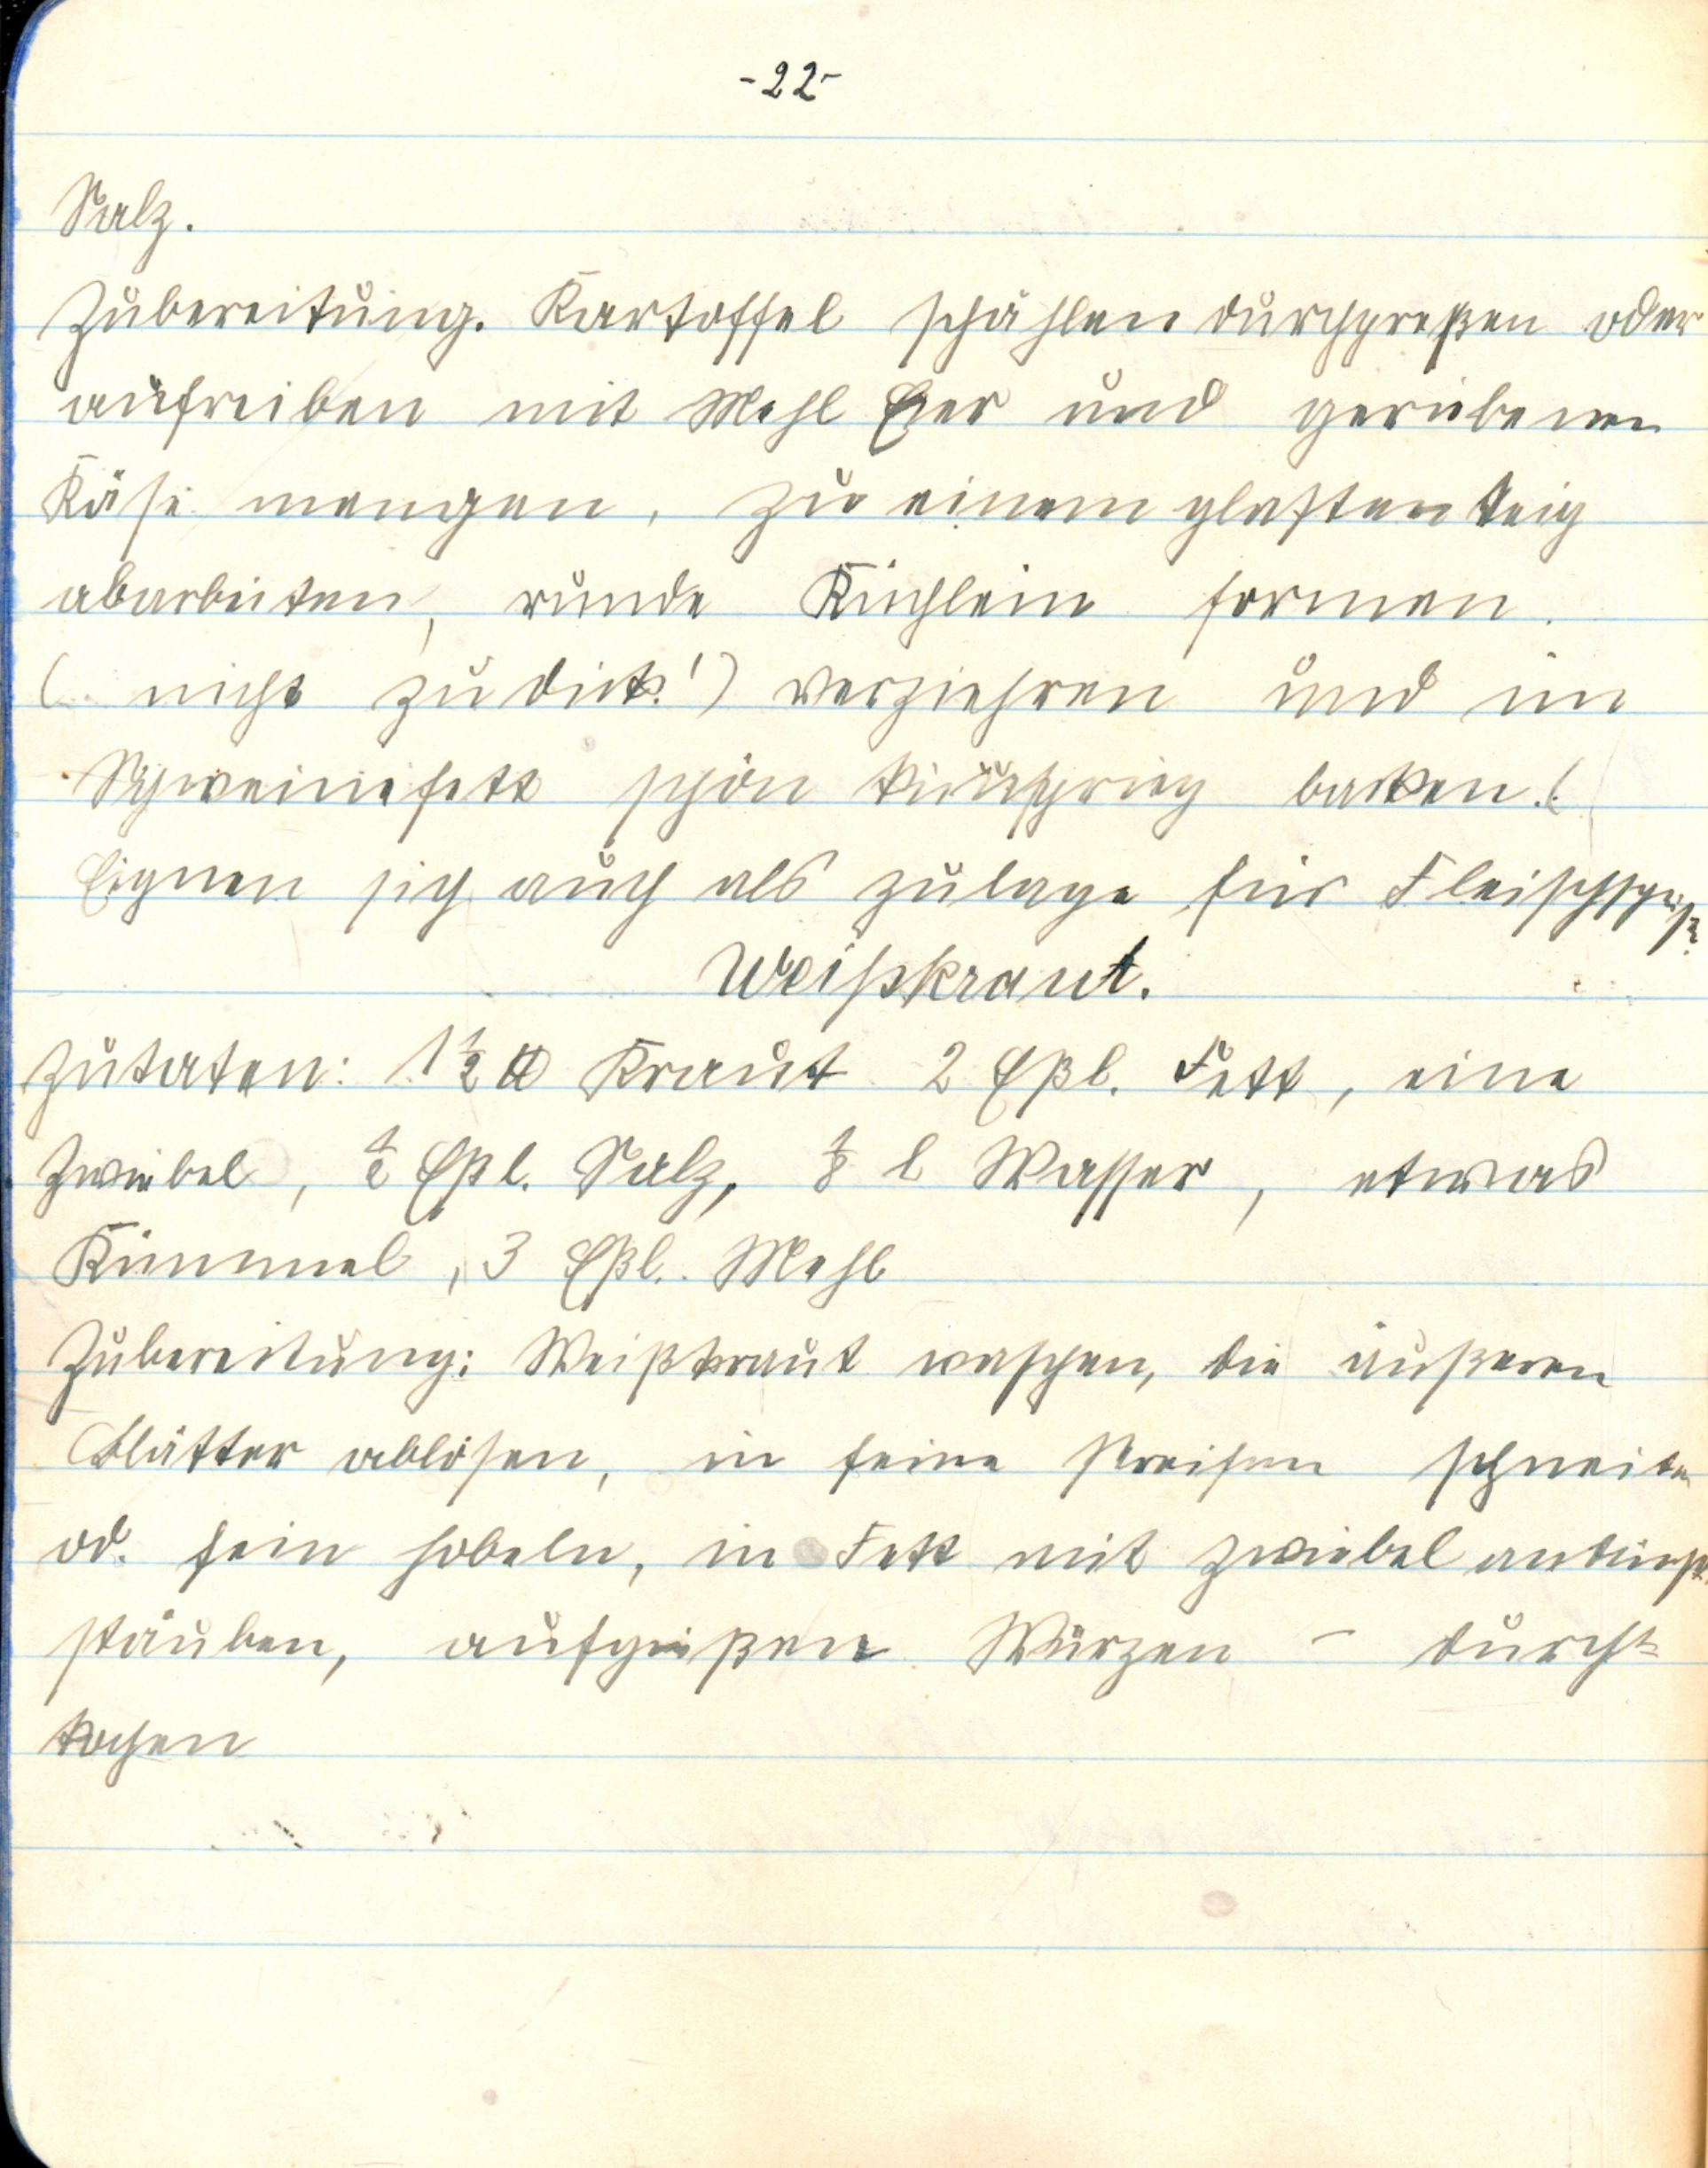 -22-
Salz.
Zubereitung. Kartoffel schählen durchpreßen oder
aufreiben mit Mehl Eier und geriebenen
Käse mengen, zu einem glatten Teig
abarbeiten, runde Küchlein formen.
( nicht zu dick!) verziehren und in
Schweinefett schön backen.(
Eignen sich auch als zulage für Fleischspeise
Weißkraut.
Zutaten: 1½ ℔ Kraut 2 Eßl. Fett, eine
Zwiebel, ½ Eßl. Salz, ⅛ l Wasser, etwas
Kümmel, 3 Eßl. Mehl
Zubereitung: Weißkraut waschen, die äußeren
Blätter ablösen, in feine Streifen schneiden
od. fein hobeln, in Fett mit Zwiebel andünst.
stäuben, aufgießen Würzen - durch-
kochen